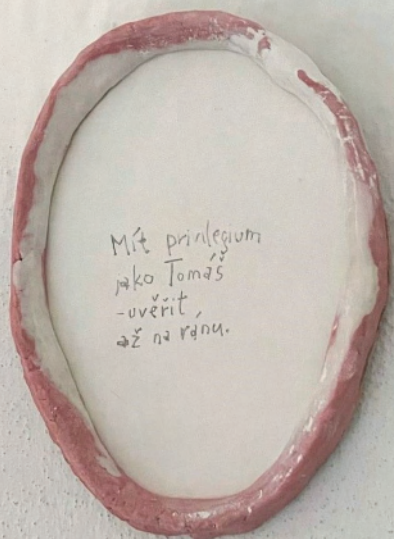 Mít privilegium
jako Tomáš
-uvěřit,
až na ránu.